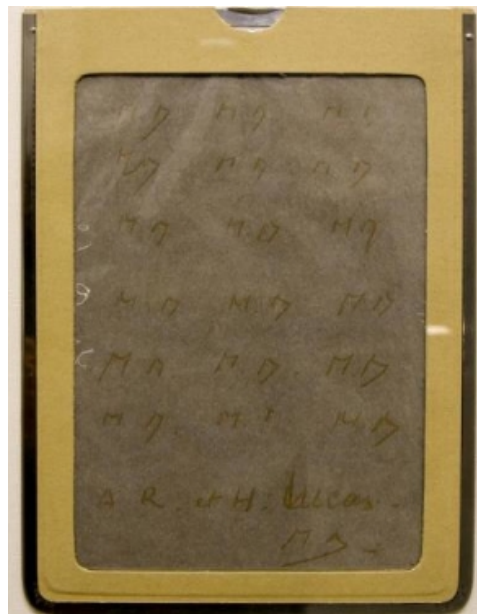 M D M D M D
M D M D M D
M D M D M D
M D M D M D
M D M D M D
M D M D
A R. et H. Lucas.
M D.